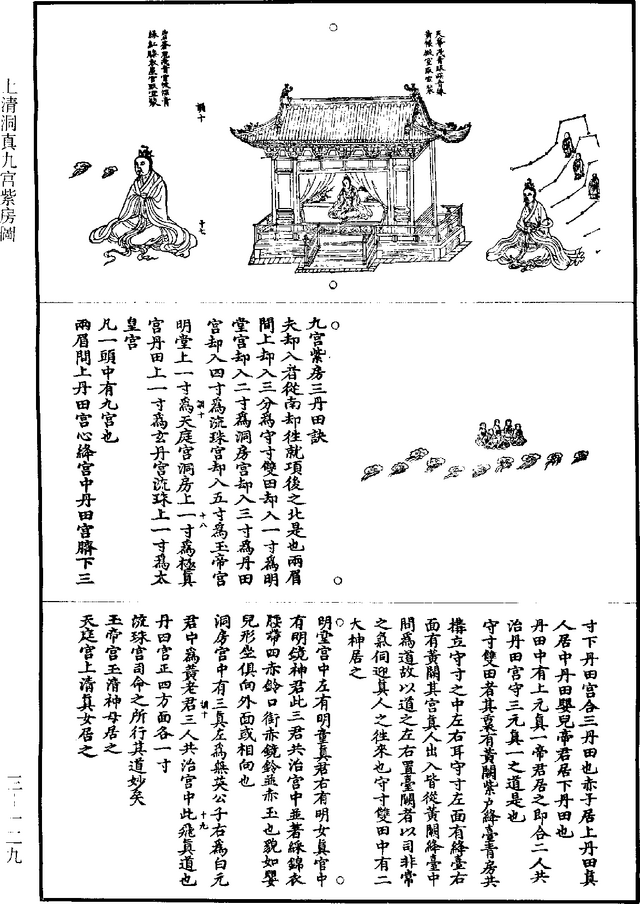 上清洞真九宮紫房圖
三-一二九
調十
十七
九宮紫房三丹田訣
夫却入者從南却往就項後之北是也兩眉
間上却入三分為守寸雙田却入一寸為明
堂宮却入二寸為洞房宮却入三寸為丹田
宮却入四寸為流珠宮却入五寸為玉帝宮
調十
十八
明堂上一寸為天庭宮洞房上一寸為極真
宮丹田上一寸為玄丹宮流珠上一寸為太
皇宮
凡一頭中有九宮也
兩眉間上丹田宮心絳宮中丹田宮臍下三
寸下丹田宮合三丹田也赤子居上丹田真
人居中丹田嬰兒帝君居下丹田也
丹田中有上元真一帝君居之即合二人共
治丹田宮守三元真一之道是也
守寸雙田者其裏有黃闕紫户絳臺青房共
構立守寸之中左右耳守寸左面有絳臺右
面有黃闕其宮真人出入皆從黃闕絳臺中
間為道故以道之左右置臺闕者以司非常
之氣伺迎真人之往來也守寸雙田中有二
大神居之
明堂宮中左有明童真君右有明女真官中
有明鏡神君此三君共治宮中並著綵錦衣
腰帶四赤鈴口銜赤鏡鈴並赤玉也貌如嬰
兒形坐俱向外面或相向也
洞房宮中有三真左為無英公子右為白元
調十
十九
君中為黃老君三人共治宮中此飛真道也
丹田宮正四方面各一寸
流珠宮司命之所行其道妙矣
玉帝宮玉清神母居之
天庭宮上清真女居之